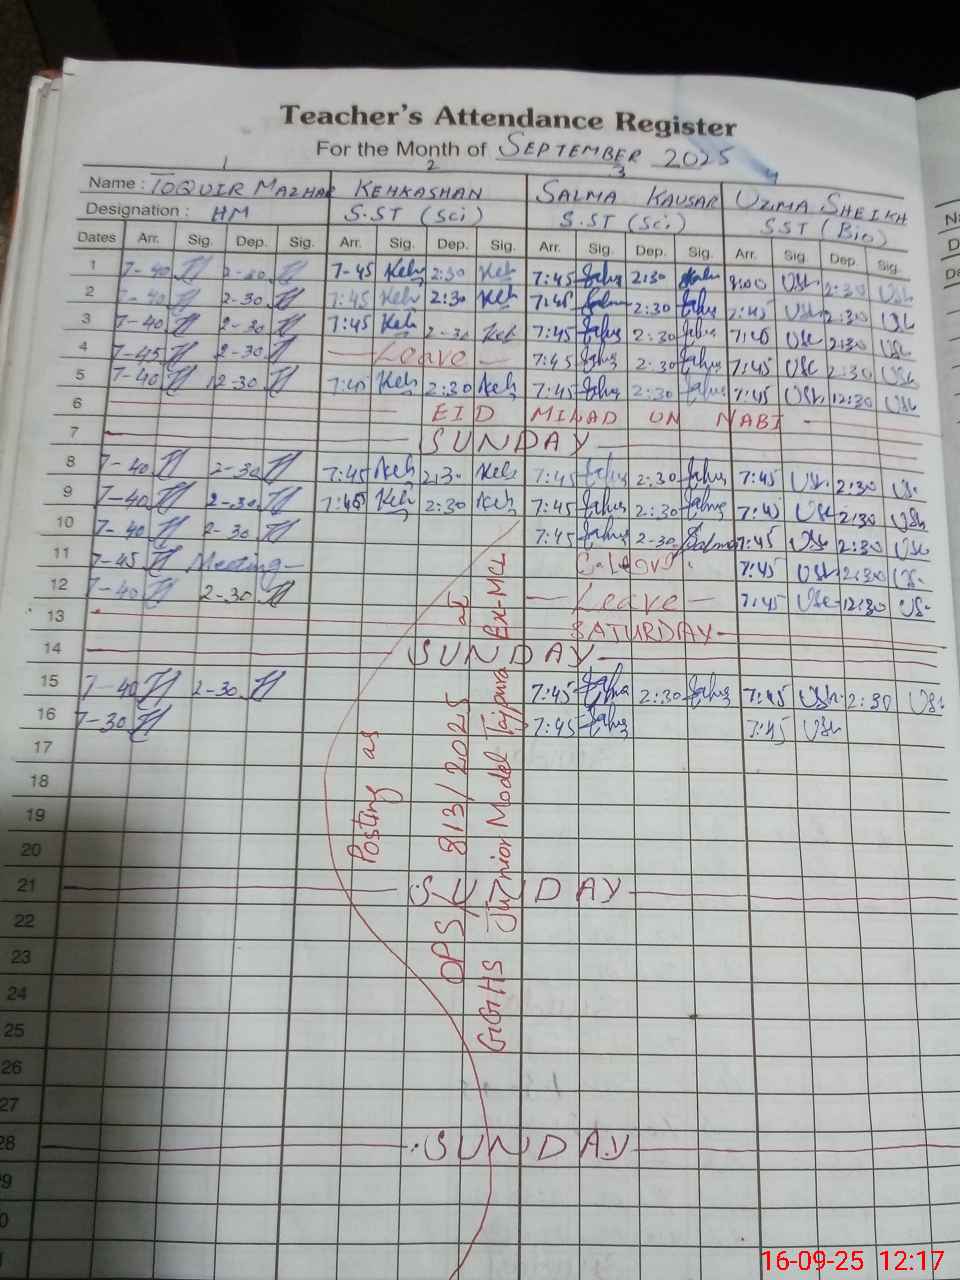 Teacher's Attendance Register
For the Month of SEPTEMBER 2025
1 2 3 4
Name : TOQUIR MAZHAR KEHKASHAN SALMA KAUSAR UZMA SHEIKH
Designation : HM S.ST (Sci) S.ST (Sci) SST (Bio)
Dates Arr. Sig. Dep. Sig. Arr. Sig. Dep. Sig. Arr. Sig. Dep. Sig. Arr. Sig. Dep. Sig.
1 7-40 2-30 7-45 Keh 2:30 Keh 7:45 2:30 8:00 USh 2:30 USh
2 7-40 2-30 7:45 Keh 2:30 Keh 7:45 2:30 7:45 USh 2:30 USh
3 7-40 2-30 7:45 Keh 2-30 Keh 7:45 2:30 7:40 USh 2:30 USh
4 7-45 2-30 Leave 7:45 2:30 7:45 USh 2:30 USh
5 7-40 12-30 7:45 Keh 2:30 Keh 7:45 2:30 7:45 USh 12:30 USh
6 EID MILAD UN NABI
7 SUNDAY
8 7-40 2-30 7:45 Keh 2:30 Keh 7:45 2:30 7:45 USh 2:30 USh
9 7-40 2-30 7:45 Keh 2:30 Keh 7:45 2:30 7:45 USh 2:30 USh
10 7-40 2-30 7:45 2-30 Salma 7:45 USh 2:30 USh
11 7-45 Meeting C. Leave 7:45 USh 2:30 USh
12 7-40 2-30 Leave 7:45 USh 12:30 USh
13 SATURDAY
14 SUNDAY
15 7-40 2-30 7:45 2:30 7:45 USh 2:30 USh
16 7-30 7:45 7:45 USh
17
18
19
20
21 SUNDAY
22
23
24
25
26
27
28 SUNDAY
9
0
Posting as
OPS/813/2025
GGHS Junior Model Tajpura Ex-MCL
16-09-25 12:17